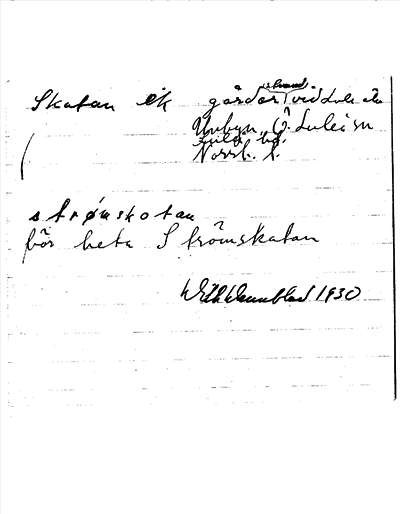 strand.
Skatan ek gårdar vid Lule älv
Unbyn, Ö. Luleå sn
Luleå
Norrb. l.
strömskotan
bör heta Strömskatan
Wilh Wennblad 1930